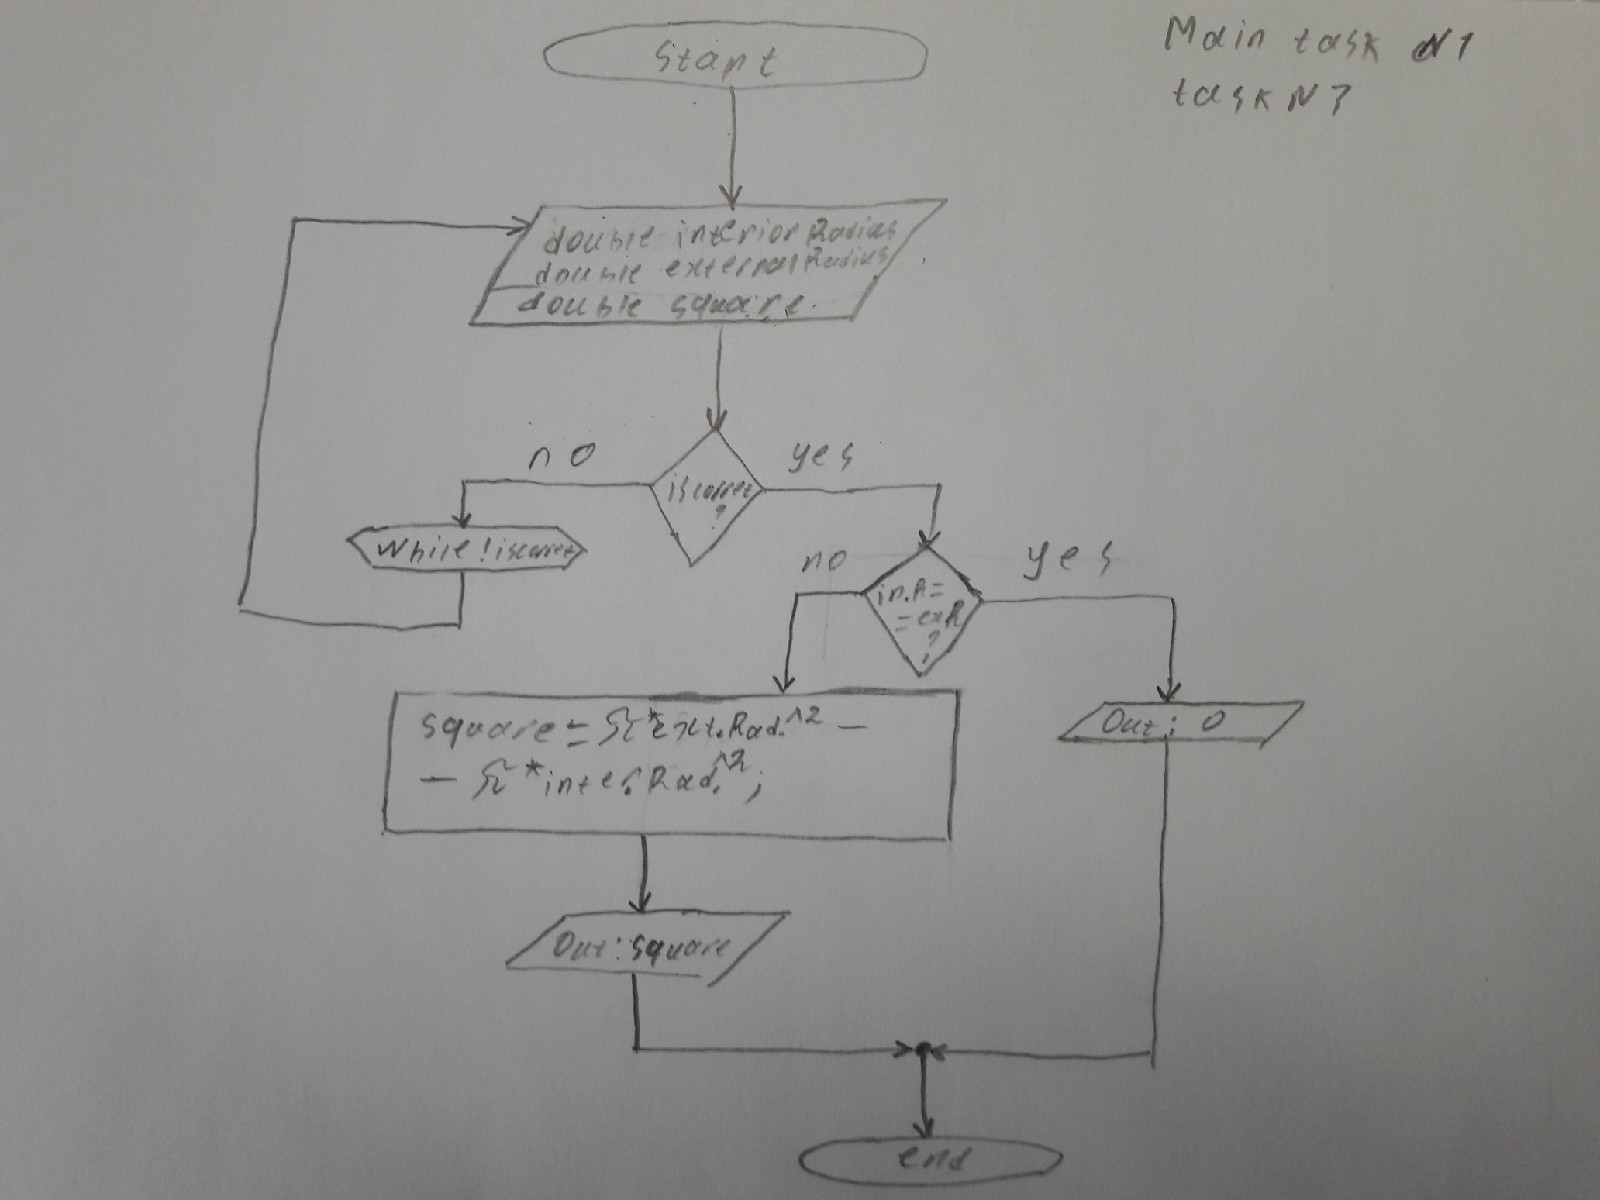 Main task N1
task N3
Start
double interiorRadius
double externalRadius
double square
no
yes
iscorrect
?
while !iscorrect
no
yes
in.R=
=exR
?
square = π*ext.Rad.^2 –
– π*inter.Rad.^2;
Out: 0
Out: square
end